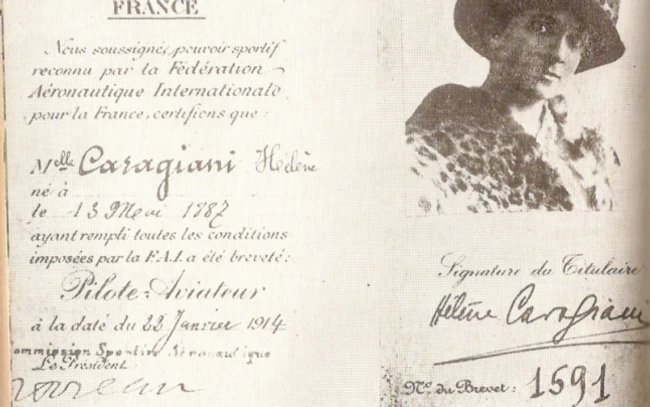 FRANCE
Nous soussignés, pouvoir sportif
reconnu par la Fédération
Aéronautique Internationale
pour la France, certifions que :
Melle Caragiani Hélène
né à
le 13 Mai 1887
ayant rempli toutes les conditions
imposées par la F.A.I. a été breveté :
Pilote-Aviateur
à la date du 22 Janvier 1914
ommission Sportive Aéronautique
Le Président
Signature du Titulaire
Hélène Caragiani
No. du Brevet : 1591